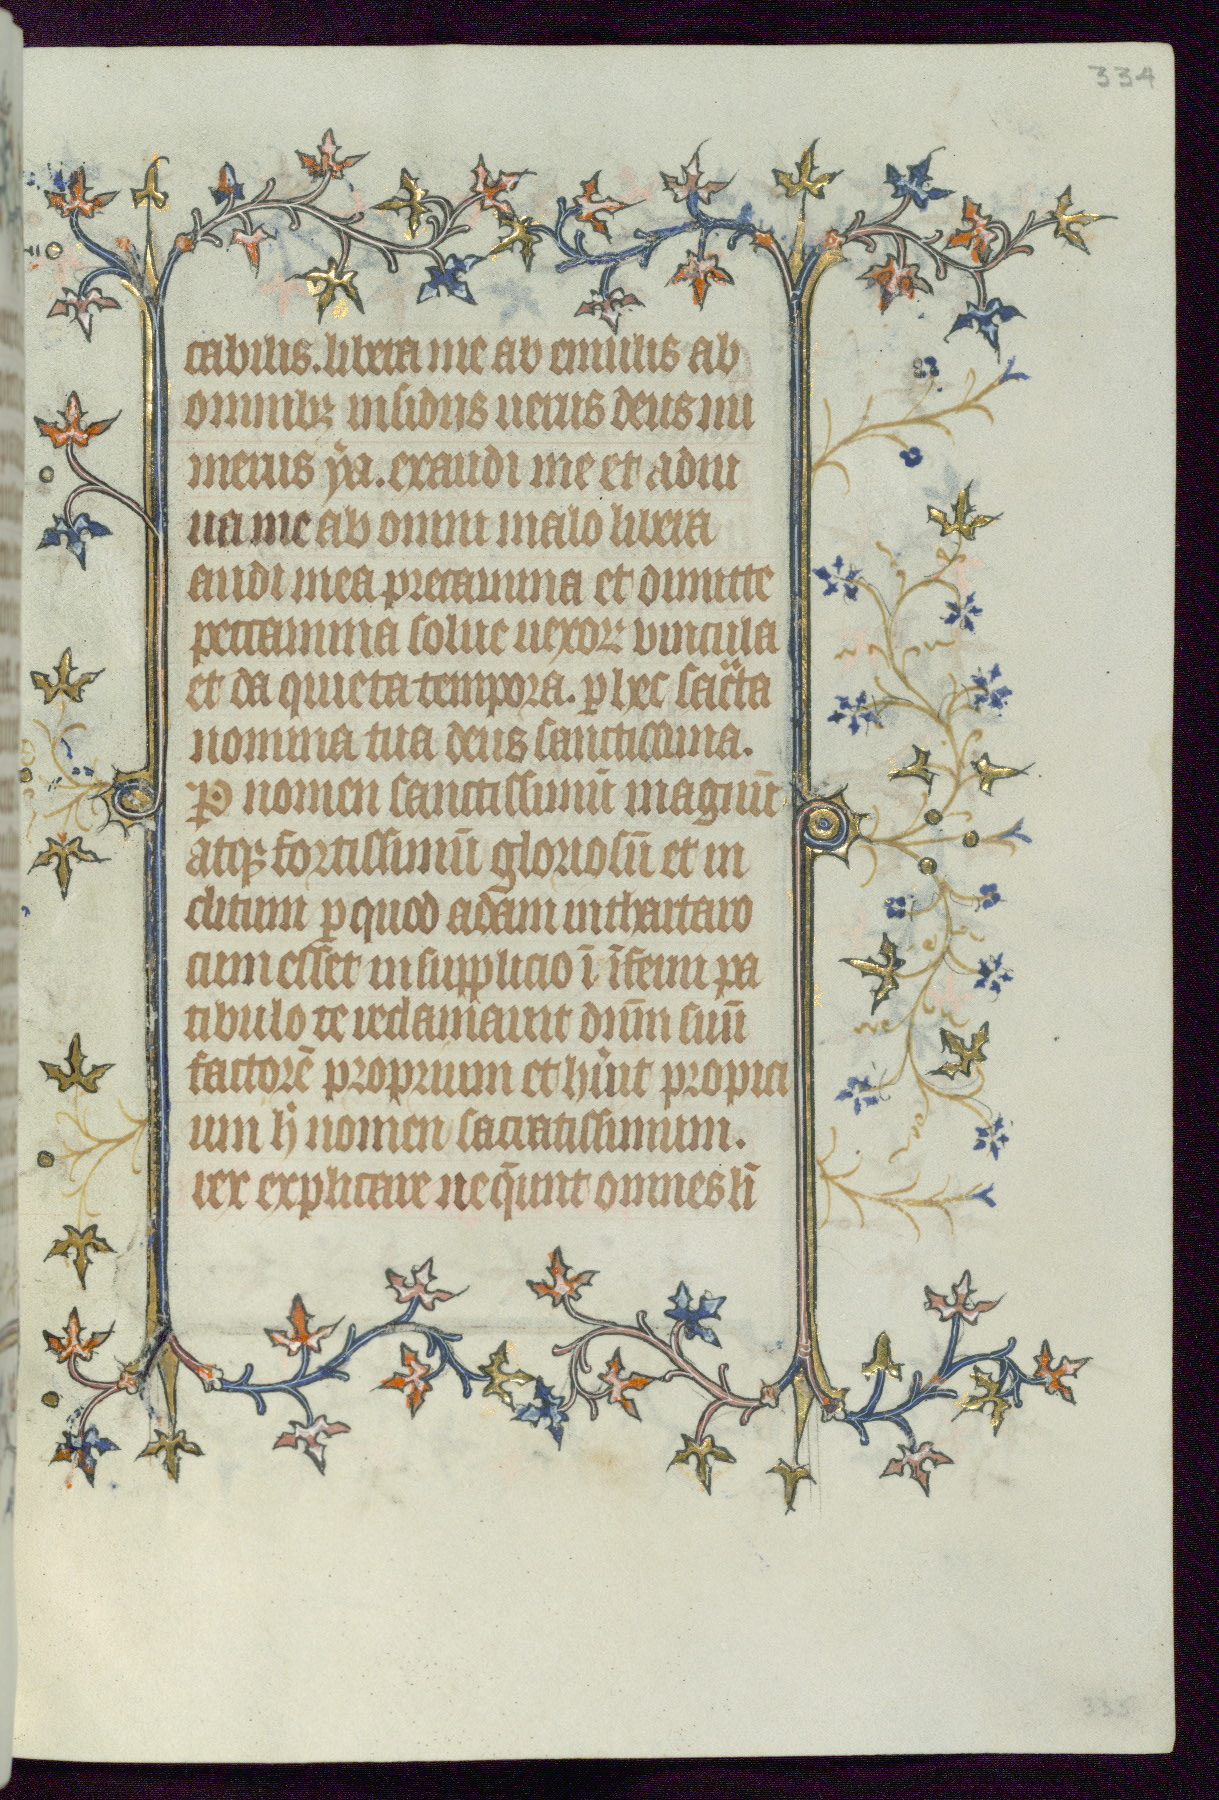 334
tabilis. libera me ab emulis ab
omnibꝫ insidiis uerus deus nu
merus ẏa. exaudi me et adiu
ua me ab omni malo libera
audi mea precamina et dimitte
peccamina solue uexorꝫ vincula
et da quieta tempora. ꝑ hec sac̄ta
nomina tua deus sanctissima.
Ꝑ nomen sanctissimū magnū
atqꝫ fortissimū gloriosū et in
clitum ꝑ quod adam in thartaro
cum ess̄et in supplicio ī īferni pa
tibulo te reclamauit dn̄m suū
factorē proprium et hūit propici
um h̄ nomen sacratissimum.
rex explicare neq̄unt omnes li
335